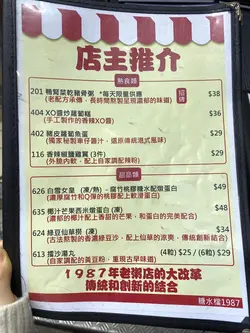 店主推介
熱食類
201 鴨腎菜乾豬骨粥 *每天限量供應 $38
(老配方承傳，長時間熬製呈現濃郁的味道)
招牌
404 XO醬炒蘿蔔糕 $49
(手工製作的香辣XO醬)
402 豬皮蘿蔔魚蛋 $29
(獨家秘製車仔醬汁，還原傳統港式風味)
116 香辣椒鹽雞翼 (3件) $29
(外脆內軟，配上自家調配辣粉)
甜品類
626 白雪女皇 (凍/熱) - 腐竹桃膠糖水配燉蛋白 $49
(濃厚腐竹和Q彈的桃膠配上軟滑蛋白)
635 椰汁芒果西米燉蛋白 (凍) $48
(濃郁的椰汁配上香甜的芒果，和蛋白的完美配合)
624 綠豆仙草撈 (凍) $34
(古法熬製的香濃綠豆沙，配上仙草的涼爽，傳統創新結合)
613 擂沙湯丸 (4粒) $25 / (6粒) $29
(自家調配的黃豆粉，重現古早味道)
1987年老粥店的大改革
傳統和創新的結合
糖水檔1987